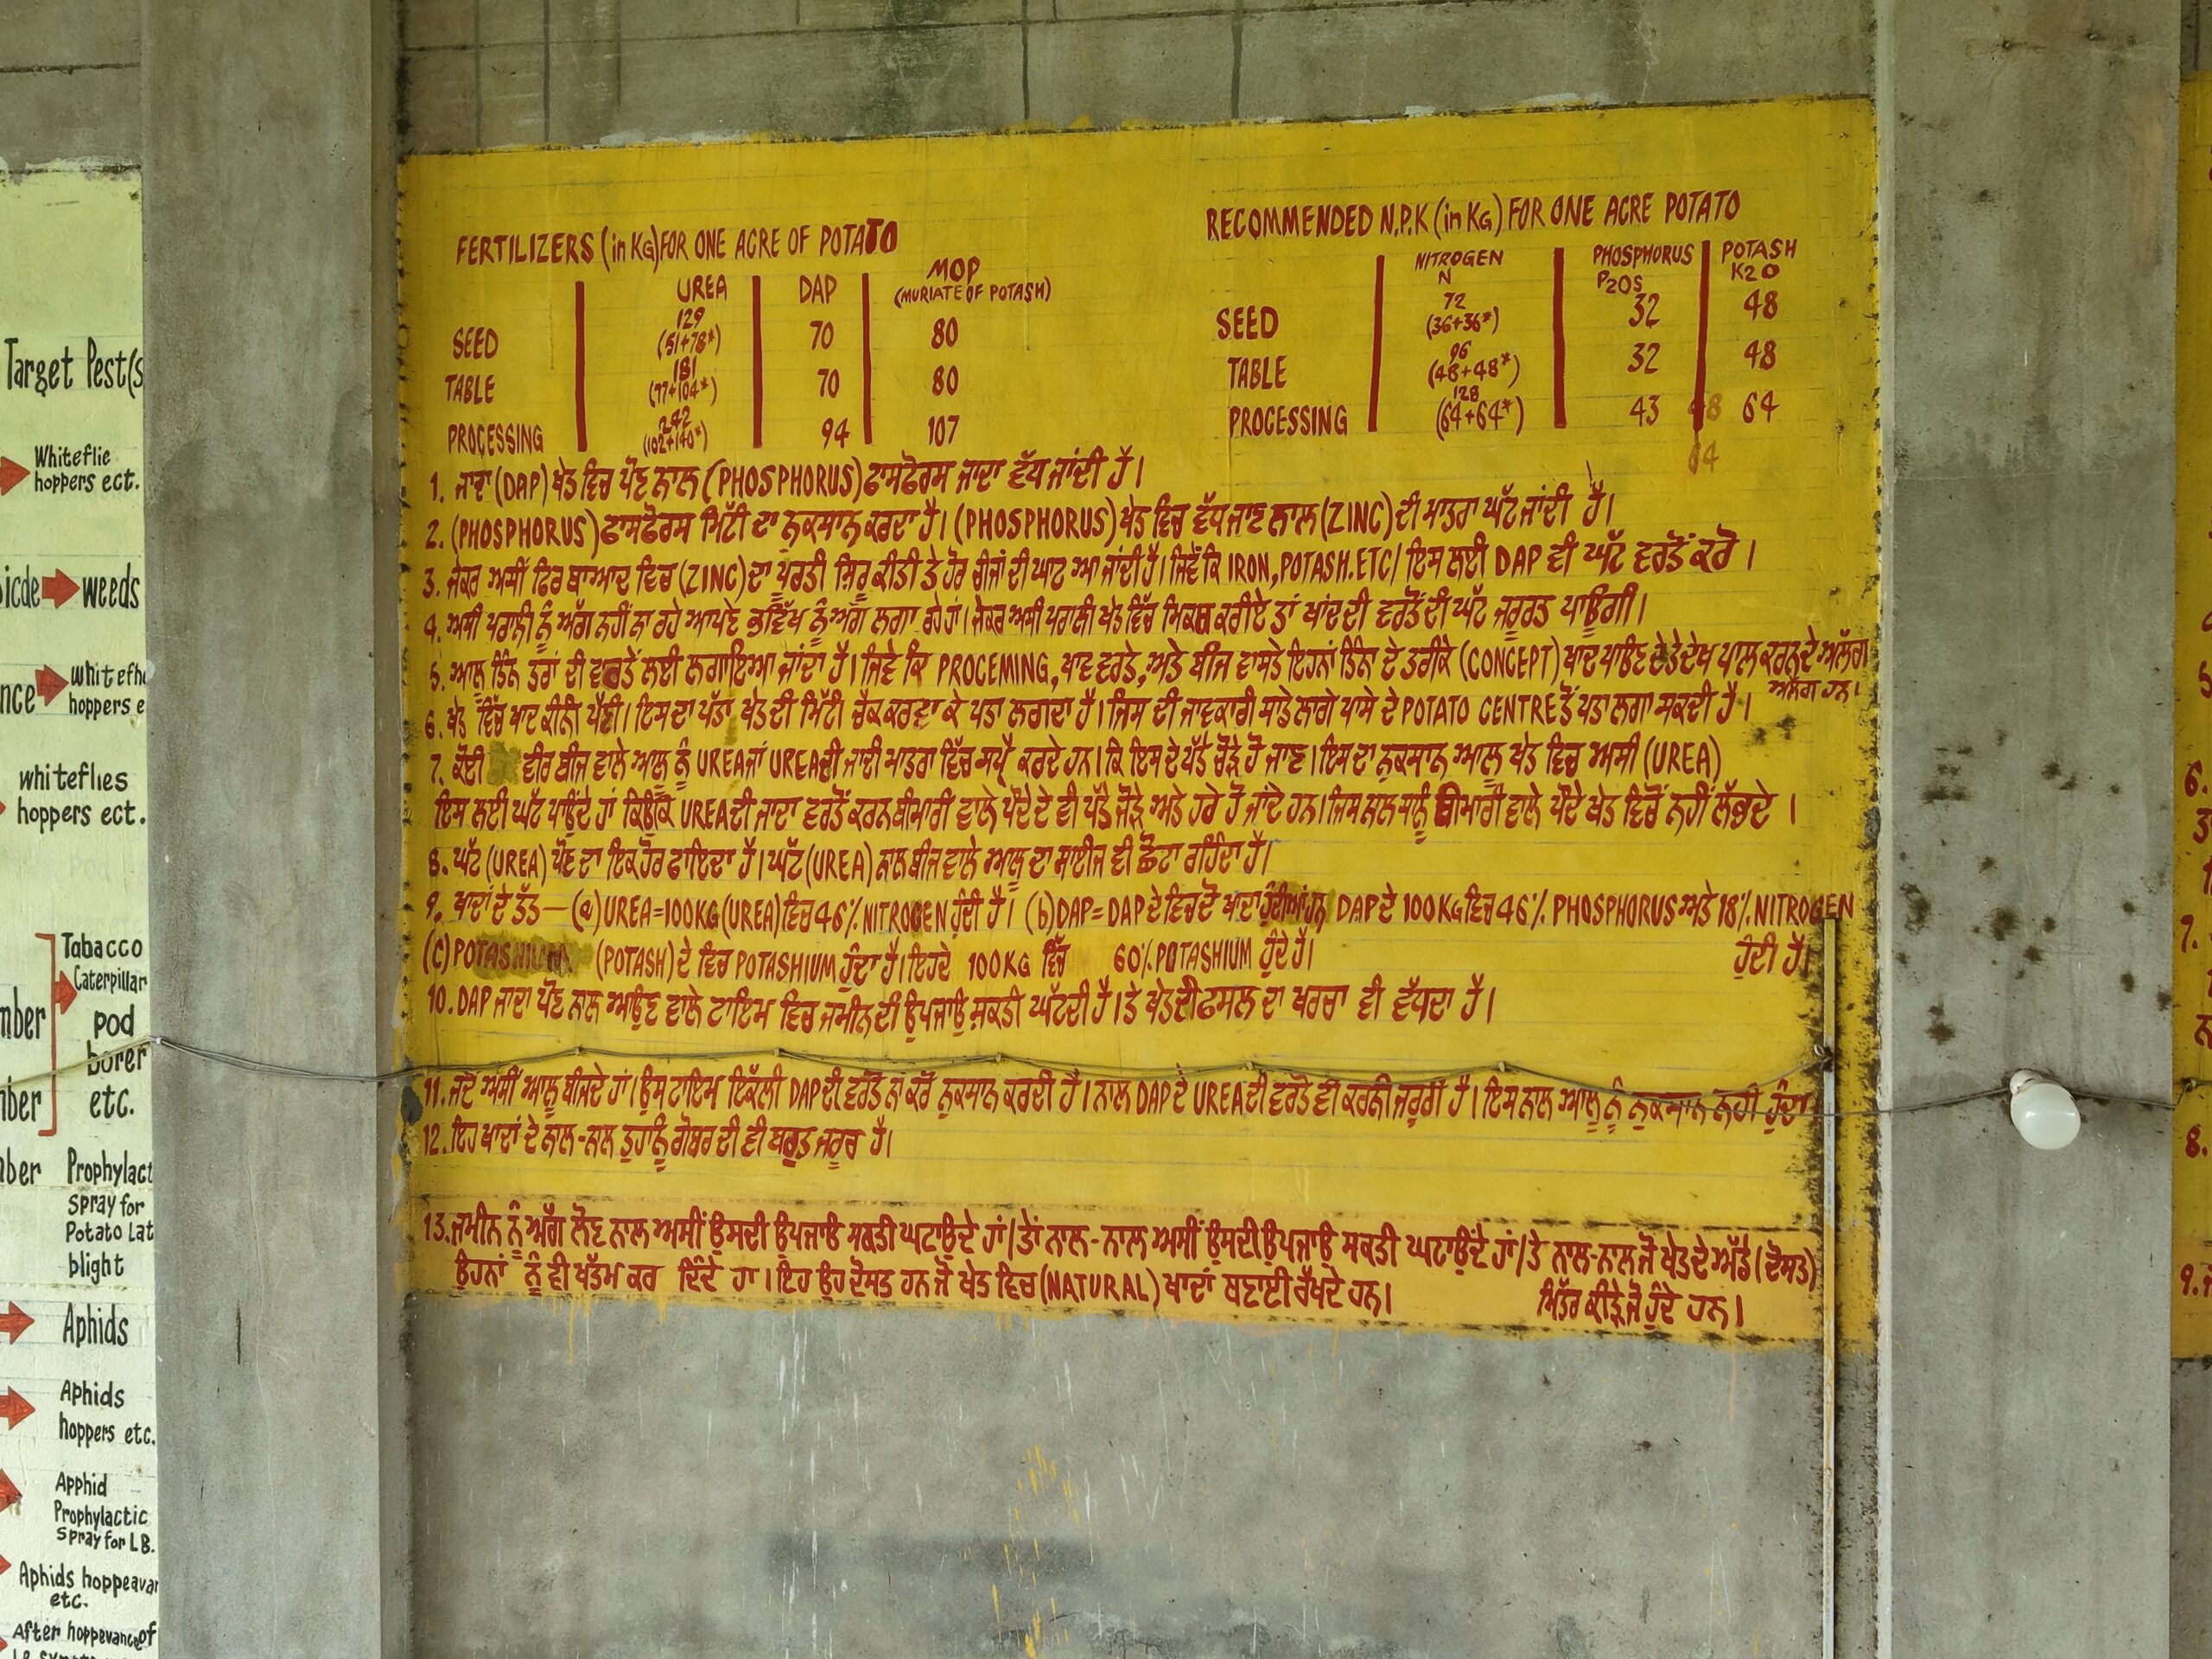 FERTILIZERS (in KG) FOR ONE ACRE OF POTATO
UREA DAP MOP
(MURIATE OF POTASH)
129
SEED (51+78*) 70 80
181
TABLE (77+104*) 70 80
242
PROCESSING (102+140*) 94 107
RECOMMENDED N.P.K (in KG) FOR ONE ACRE POTATO
NITROGEN PHOSPHORUS POTASH
N P2O5 K2O
72
SEED (36+36*) 32 48
96
TABLE (48+48*) 32 48
128
PROCESSING (64+64*) 43 64
1. ਜਾਦਾ (DAP) ਖੇਤ ਵਿਚ ਪੌਣ ਨਾਲ (PHOSPHORUS) ਫਾਸਫੋਰਸ ਜਾਦਾ ਵੱਧ ਜਾਂਦੀ ਹੈ।
2. (PHOSPHORUS) ਫਾਸਫੋਰਸ ਮਿੱਟੀ ਦਾ ਨੁਕਸਾਨ ਕਰਦਾ ਹੈ। (PHOSPHORUS) ਖੇਤ ਵਿਚ ਵੱਧ ਜਾਣ ਨਾਲ (ZINC) ਦੀ ਮਾਤਰਾ ਘੱਟ ਜਾਂਦੀ ਹੈ।
3. ਜੇਕਰ ਅਸੀਂ ਫਿਰ ਬਾਅਦ ਵਿਚ (ZINC) ਦਾ ਪੂਰਤੀ ਕੀਤੀ ਤੇ ਹੋਰ ਚੀਜਾਂ ਦੀ ਘਾਟ ਆ ਜਾਂਦੀ ਹੈ। ਜਿਵੇਂ ਕਿ IRON, POTASH.ETC/ ਇਸ ਲਈ DAP ਵੀ ਘੱਟ ਵਰਤੋਂ ਕਰੋ।
4. ਅਸੀਂ ਪਰਾਲੀ ਨੂੰ ਅੱਗ ਨਹੀਂ ਲਾ ਰਹੇ ਆਪਣੇ ਭਵਿੱਖ ਨੂੰ ਅੱਗ ਲਗਾ ਰਹੇ ਹਾਂ। ਜੇਕਰ ਅਸੀਂ ਪਰਾਲੀ ਖੇਤ ਵਿੱਚ ਮਿਕਸ ਕਰੀਏ ਤਾਂ ਖਾਂਦ ਦੀ ਵਰਤੋਂ ਦੀ ਘੱਟ ਜਰੂਰਤ ਪਾਊਗੀ।
5. ਆਲੂ ਤਿੰਨ ਤਰਾਂ ਦੀ ਵਾਰਤੋਂ ਲਈ ਲਗਾਇਆ ਜਾਂਦਾ ਹੈ। ਜਿਵੇ ਕਿ PROCEMING, ਖਾਣ ਵਰਤੇ, ਅਤੇ ਬੀਜ ਵਾਸਤੇ ਇਹਨਾਂ ਤਿੰਨਾ ਦੇ ਤਰੀਕੇ (CONCEPT) ਖਾਦ ਪਾਉਣ ਦੇ ਤੇ ਦੇਖ ਪਾਲ ਕਰਨ ਦੇ ਅਲੱਗ
ਅਲੱਗ ਹਨ।
6. ਖੇਤ ਵਿੱਚ ਖਾਦ ਕੀਨੀ ਪੈਣੀ। ਇਸ ਦਾ ਪੱਤਾ ਖੇਤ ਦੀ ਮਿੱਟੀ ਚੈਕ ਕਰਵਾ ਕੇ ਪਤਾ ਲਗਦਾ ਹੈ। ਜਿਸ ਦੀ ਜਾਣਕਾਰੀ ਸਾਡੇ ਲਾਗੇ ਪਾਸੇ ਦੇ POTATO CENTRE ਤੋਂ ਪਤਾ ਲਗਾ ਸਕਦੀ ਹੈ।
7. ਕੋਈ ਵੀਰ ਬੀਜ ਵਾਲੇ ਆਲੂ ਨੂੰ UREA ਜਾਂ UREA ਦੀ ਜਾਦੀ ਮਾਤਰਾ ਵਿੱਚ ਸਪ੍ਰੈ ਕਰਦੇ ਹਨ। ਕਿ ਇਸ ਦੇ ਪੱਤੇ ਚੌੜੇ ਹੋ ਜਾਣ। ਇਸ ਦਾ ਨੁਕਸਾਨ ਆਲੂ ਖੇਤ ਵਿਚ ਅਸੀ (UREA)
ਇਸ ਲਈ ਘੱਟ ਪਾਉਂਦੇ ਹਾਂ ਕਿਉਂਕਿ UREA ਦੀ ਜਾਦਾ ਵਰਤੋਂ ਕਰਨ ਬੀਮਾਰੀ ਵਾਲੇ ਪੌਦੇ ਦੇ ਵੀ ਪੱਤੇ ਚੌੜੇ ਅਤੇ ਹਰੇ ਹੋ ਜਾਂਦੇ ਹਨ। ਜਿਸ ਨਾਲ ਸਾਨੂੰ ਬੀਮਾਰੀ ਵਾਲੇ ਪੌਦੇ ਖੇਤ ਵਿਚੋਂ ਨਹੀਂ ਲੱਭਦੇ ।
8. ਘੱਟ (UREA) ਪੌਣ ਦਾ ਇਕ ਹੋਰ ਫਾਇਦਾ ਹੈ। ਘੱਟ (UREA) ਨਾਲ ਬੀਜ ਵਾਲੇ ਆਲੂ ਦਾ ਸਾਈਜ ਵੀ ਛੋਟਾ ਰਹਿੰਦਾ ਹੈ।
9. ਖਾਦਾਂ ਦੇ ਤੱਤ — (a) UREA = 100KG (UREA) ਵਿਚ 46% NITROGEN ਹੁੰਦੀ ਹੈ। (b) DAP = DAP ਦੇ ਵਿਚ ਦੋ ਖਾਦਾ ਹੁੰਦੀਆਂ ਹਨ DAP ਦੇ 100 KG ਵਿਚ 46% PHOSPHORUS ਅਤੇ 18% NITROGEN
ਹੁੰਦੀ ਹੈ।
(C) POTASHIUM (POTASH) ਦੇ ਵਿਚ POTASHIUM ਹੁੰਦਾ ਹੈ। ਇਹਦੇ 100KG ਵਿੱਚ 60% POTASHIUM ਹੁੰਦੇ ਹੈ।
10. DAP ਜਾਦਾ ਪੌਣ ਨਾਲ ਆਉਣ ਵਾਲੇ ਟਾਇਮ ਵਿਚ ਜਮੀਨ ਦੀ ਉਪਜਾਉ ਸ਼ਕਤੀ ਘੱਟਦੀ ਹੈ। ਤੇ ਖੇਤ ਦੀ ਫਸਲ ਦਾ ਖਰਚਾ ਵੀ ਵੱਧਦਾ ਹੈ।
11. ਜਦੋਂ ਅਸੀਂ ਆਲੂ ਬੀਜਦੇ ਹਾਂ। ਉਸ ਟਾਇਮ ਇਕੱਲੀ DAP ਦੀ ਵਰਤੋ ਨਾਂ ਕਰੋ ਨੁਕਸਾਨ ਕਰਦੀ ਹੈ। ਨਾਲ DAP ਦੇ UREA ਦੀ ਵਰਤੋ ਵੀ ਕਰਨੀ ਜਰੂਰੀ ਹੈ। ਇਸ ਨਾਲ ਆਲੂ ਨੂੰ ਨੁਕਸਾਨ ਨਹੀ ਹੁੰਦਾ
12. ਇਹ ਖਾਦਾਂ ਦੇ ਨਾਲ-ਨਾਲ ਤੁਹਾਨੂੰ ਗੋਬਰ ਦੀ ਵੀ ਬਹੁਤ ਜਰੂਰ ਹੈ।
13. ਜ਼ਮੀਨ ਨੂੰ ਅੱਗ ਲੌਣ ਨਾਲ ਅਸੀਂ ਉਸਦੀ ਉਪਜਾਉ ਸਕਤੀ ਘਟਾਉਂਦੇ ਹਾਂ/ ਤੇਂ ਨਾਲ-ਨਾਲ ਅਸੀਂ ਉਸਦੀ ਉਪਜਾਉ ਸਕਤੀ ਘਟਾਉਂਦੇ ਹਾਂ/ ਤੇ ਨਾਲ-ਨਾਲ ਜੋ ਖੇਤ ਦੇ ਅੱਤੇ (ਦੋਸਤ)
ਮਿੱਤਰ ਕੀੜੇ ਜੋ ਹੁੰਦੇ ਹਨ।
ਉਹਨਾਂ ਨੂੰ ਵੀ ਖੱਤਮ ਕਰ ਦਿੰਦੇ ਹਾ। ਇਹ ਉਹ ਦੋਸਤ ਹਨ ਜੋ ਖੇਤ ਵਿਚ (NATURAL) ਖਾਦਾਂ ਬਣਾਈ ਰੱਖਦੇ ਹਨ।
Target Pest(s
Whiteflie
hoppers ect.
weeds
whitefh
hoppers e
whiteflies
hoppers ect.
Tabacco
Caterpillar
pod
borer
etc.
Prophylact
Spray for
Potato Lat
blight
Aphids
Aphids
hoppers etc.
Apphid
Prophylactic
Spray for LB.
Aphids hoppeavar
etc.
After hoppevance of